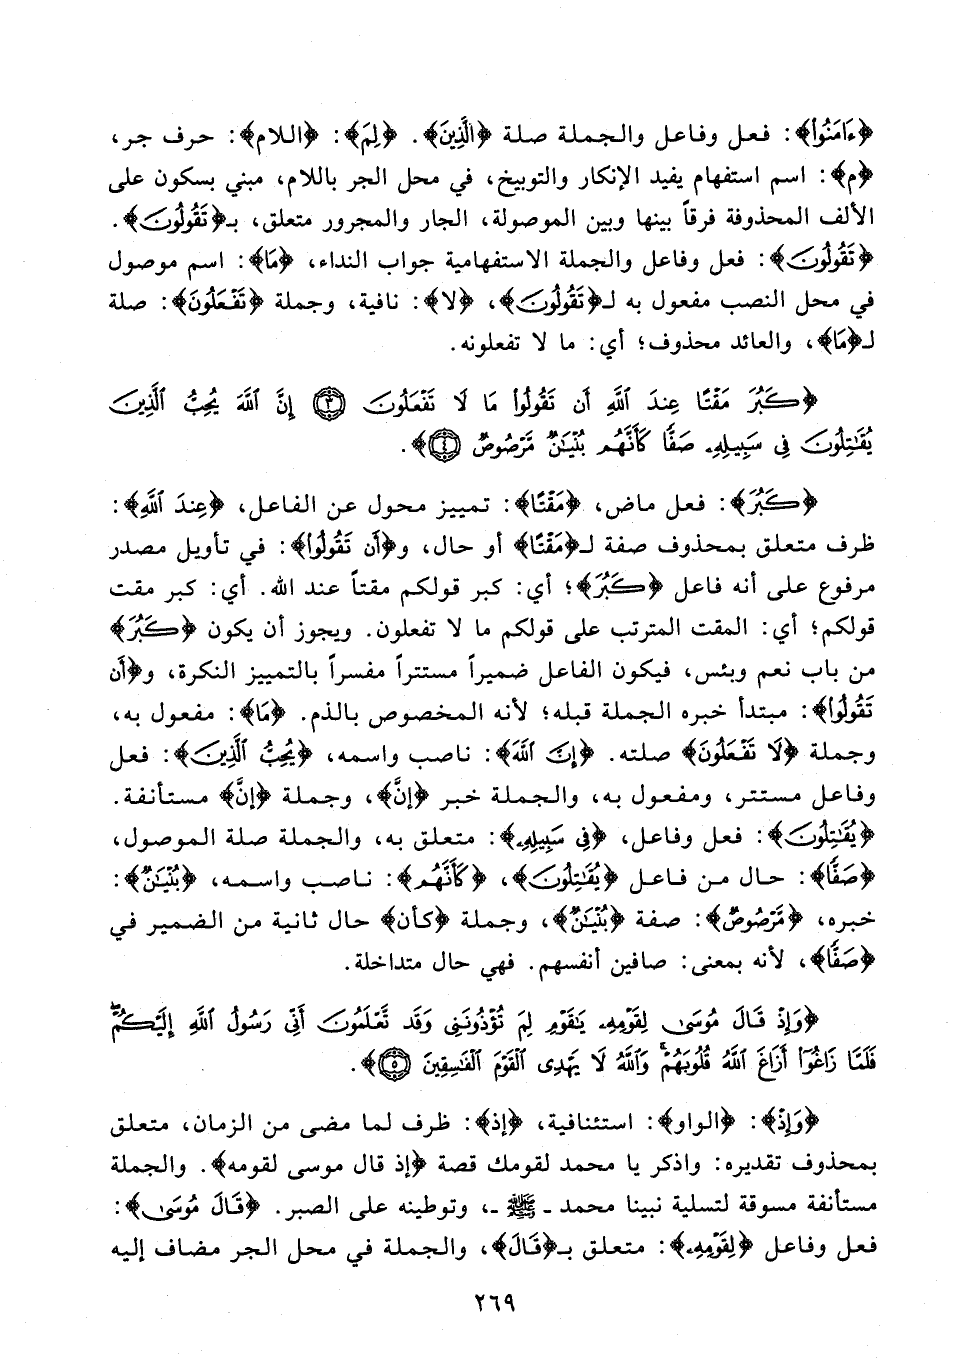 ﴿ءَامَنُوا﴾: فعل وفاعل والجملة صلة ﴿الَّذِينَ﴾. ﴿لِمَ﴾: ﴿اللام﴾: حرف جر،
﴿م﴾: اسم استفهام يفيد الإنكار والتوبيخ، في محل الجر باللام، مبني بسكون على
الألف المحذوفة فرقاً بينها وبين الموصولة، الجار والمجرور متعلق، بـ﴿تَقُولُونَ﴾.
﴿تَقُولُونَ﴾: فعل وفاعل والجملة الاستفهامية جواب النداء، ﴿مَا﴾: اسم موصول
في محل النصب مفعول به لـ﴿تَقُولُونَ﴾، ﴿لا﴾: نافية، وجملة ﴿تَفْعَلُونَ﴾: صلة
لـ﴿مَا﴾، والعائد محذوف؛ أي: ما لا تفعلونه.
﴿كَبُرَ مَقْتًا عِندَ اللَّهِ أَن تَقُولُوا مَا لَا تَفْعَلُونَ ٣ إِنَّ اللَّهَ يُحِبُّ الَّذِينَ
يُقَاتِلُونَ فِي سَبِيلِهِ صَفًّا كَأَنَّهُم بُنْيَانٌ مَّرْصُوصٌ ٤﴾.
﴿كَبُرَ﴾: فعل ماض، ﴿مَقْتًا﴾: تمييز محول عن الفاعل، ﴿عِندَ اللَّهِ﴾:
ظرف متعلق بمحذوف صفة لـ﴿مَقْتًا﴾ أو حال، و﴿أَن تَقُولُوا﴾: في تأويل مصدر
مرفوع على أنه فاعل ﴿كَبُرَ﴾؛ أي: كبر قولكم مقتاً عند الله. أي: كبر مقت
قولكم؛ أي: المقت المترتب على قولكم ما لا تفعلون. ويجوز أن يكون ﴿كَبُرَ﴾
من باب نعم وبئس، فيكون الفاعل ضميراً مستتراً مفسراً بالتمييز النكرة، و﴿أَن
تَقُولُوا﴾: مبتدأ خبره الجملة قبله؛ لأنه المخصوص بالذم. ﴿مَا﴾: مفعول به،
وجملة ﴿لَا تَفْعَلُونَ﴾ صلته. ﴿إِنَّ اللَّهَ﴾: ناصب واسمه، ﴿يُحِبُّ الَّذِينَ﴾: فعل
وفاعل مستتر، ومفعول به، والجملة خبر ﴿إِنَّ﴾، وجملة ﴿إِنَّ﴾ مستأنفة.
﴿يُقَاتِلُونَ﴾: فعل وفاعل، ﴿فِي سَبِيلِهِ﴾: متعلق به، والجملة صلة الموصول،
﴿صَفًّا﴾: حال من فاعل ﴿يُقَاتِلُونَ﴾، ﴿كَأَنَّهُم﴾: ناصب واسمه، ﴿بُنْيَانٌ﴾:
خبره، ﴿مَّرْصُوصٌ﴾: صفة ﴿بُنْيَانٌ﴾، وجملة ﴿كأن﴾ حال ثانية من الضمير في
﴿صَفًّا﴾، لأنه بمعنى: صافين أنفسهم. فهي حال متداخلة.
﴿وَإِذْ قَالَ مُوسَى لِقَوْمِهِ يَاقَوْمِ لِمَ تُؤْذُونَنِي وَقَد تَّعْلَمُونَ أَنِّي رَسُولُ اللَّهِ إِلَيْكُمْ
فَلَمَّا زَاغُوا أَزَاغَ اللَّهُ قُلُوبَهُمْ وَاللَّهُ لَا يَهْدِي الْقَوْمَ الْفَاسِقِينَ ٥﴾.
﴿وَإِذْ﴾: ﴿الواو﴾: استئنافية، ﴿إذ﴾: ظرف لما مضى من الزمان، متعلق
بمحذوف تقديره: واذكر يا محمد لقومك قصة ﴿إذ قال موسى لقومه﴾. والجملة
مستأنفة مسوقة لتسلية نبينا محمد ـ ﷺ ـ، وتوطينه على الصبر. ﴿قَالَ مُوسَى﴾:
فعل وفاعل ﴿لِقَوْمِهِ﴾: متعلق بـ﴿قَالَ﴾، والجملة في محل الجر مضاف إليه
٢٦٩